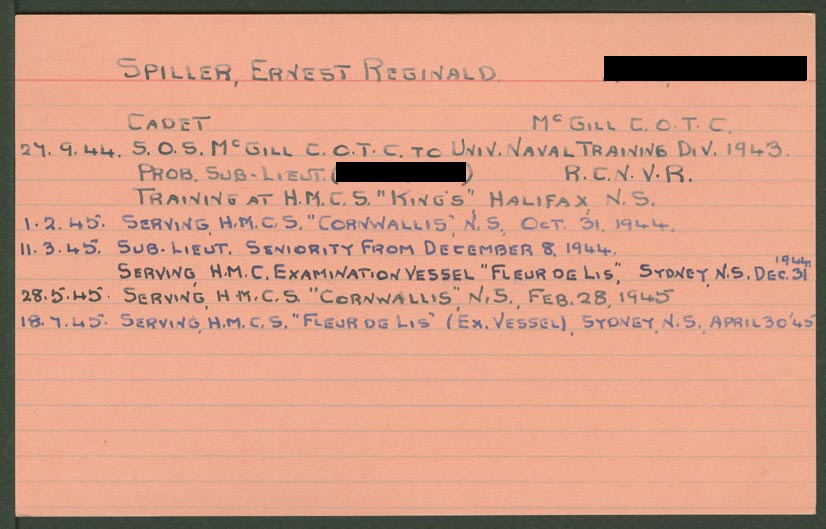 SPILLER, ERNEST REGINALD.
CADET McGILL C.O.T.C.
27.9.44. S.O.S. McGILL C.O.T.C. TO UNIV. NAVAL TRAINING DIV. 1943.
PROB. SUB-LIEUT. ( ) R.C.N.V.R.
TRAINING AT H.M.C.S. "KING'S" HALIFAX, N.S.
1.2.45. SERVING, H.M.C.S. "CORNWALLIS", N.S., OCT. 31, 1944.
11.3.45. SUB-LIEUT. SENIORITY FROM DECEMBER 8, 1944.
SERVING, H.M.C. EXAMINATION VESSEL "FLEUR DE LIS", SYDNEY, N.S. DEC. 31 1944.
28.5.45. SERVING, H.M.C.S. "CORNWALLIS", N.S., FEB. 28, 1945
18.7.45. SERVING, H.M.C.S. "FLEUR DE LIS" (EX. VESSEL), SYDNEY, N.S., APRIL 30'45